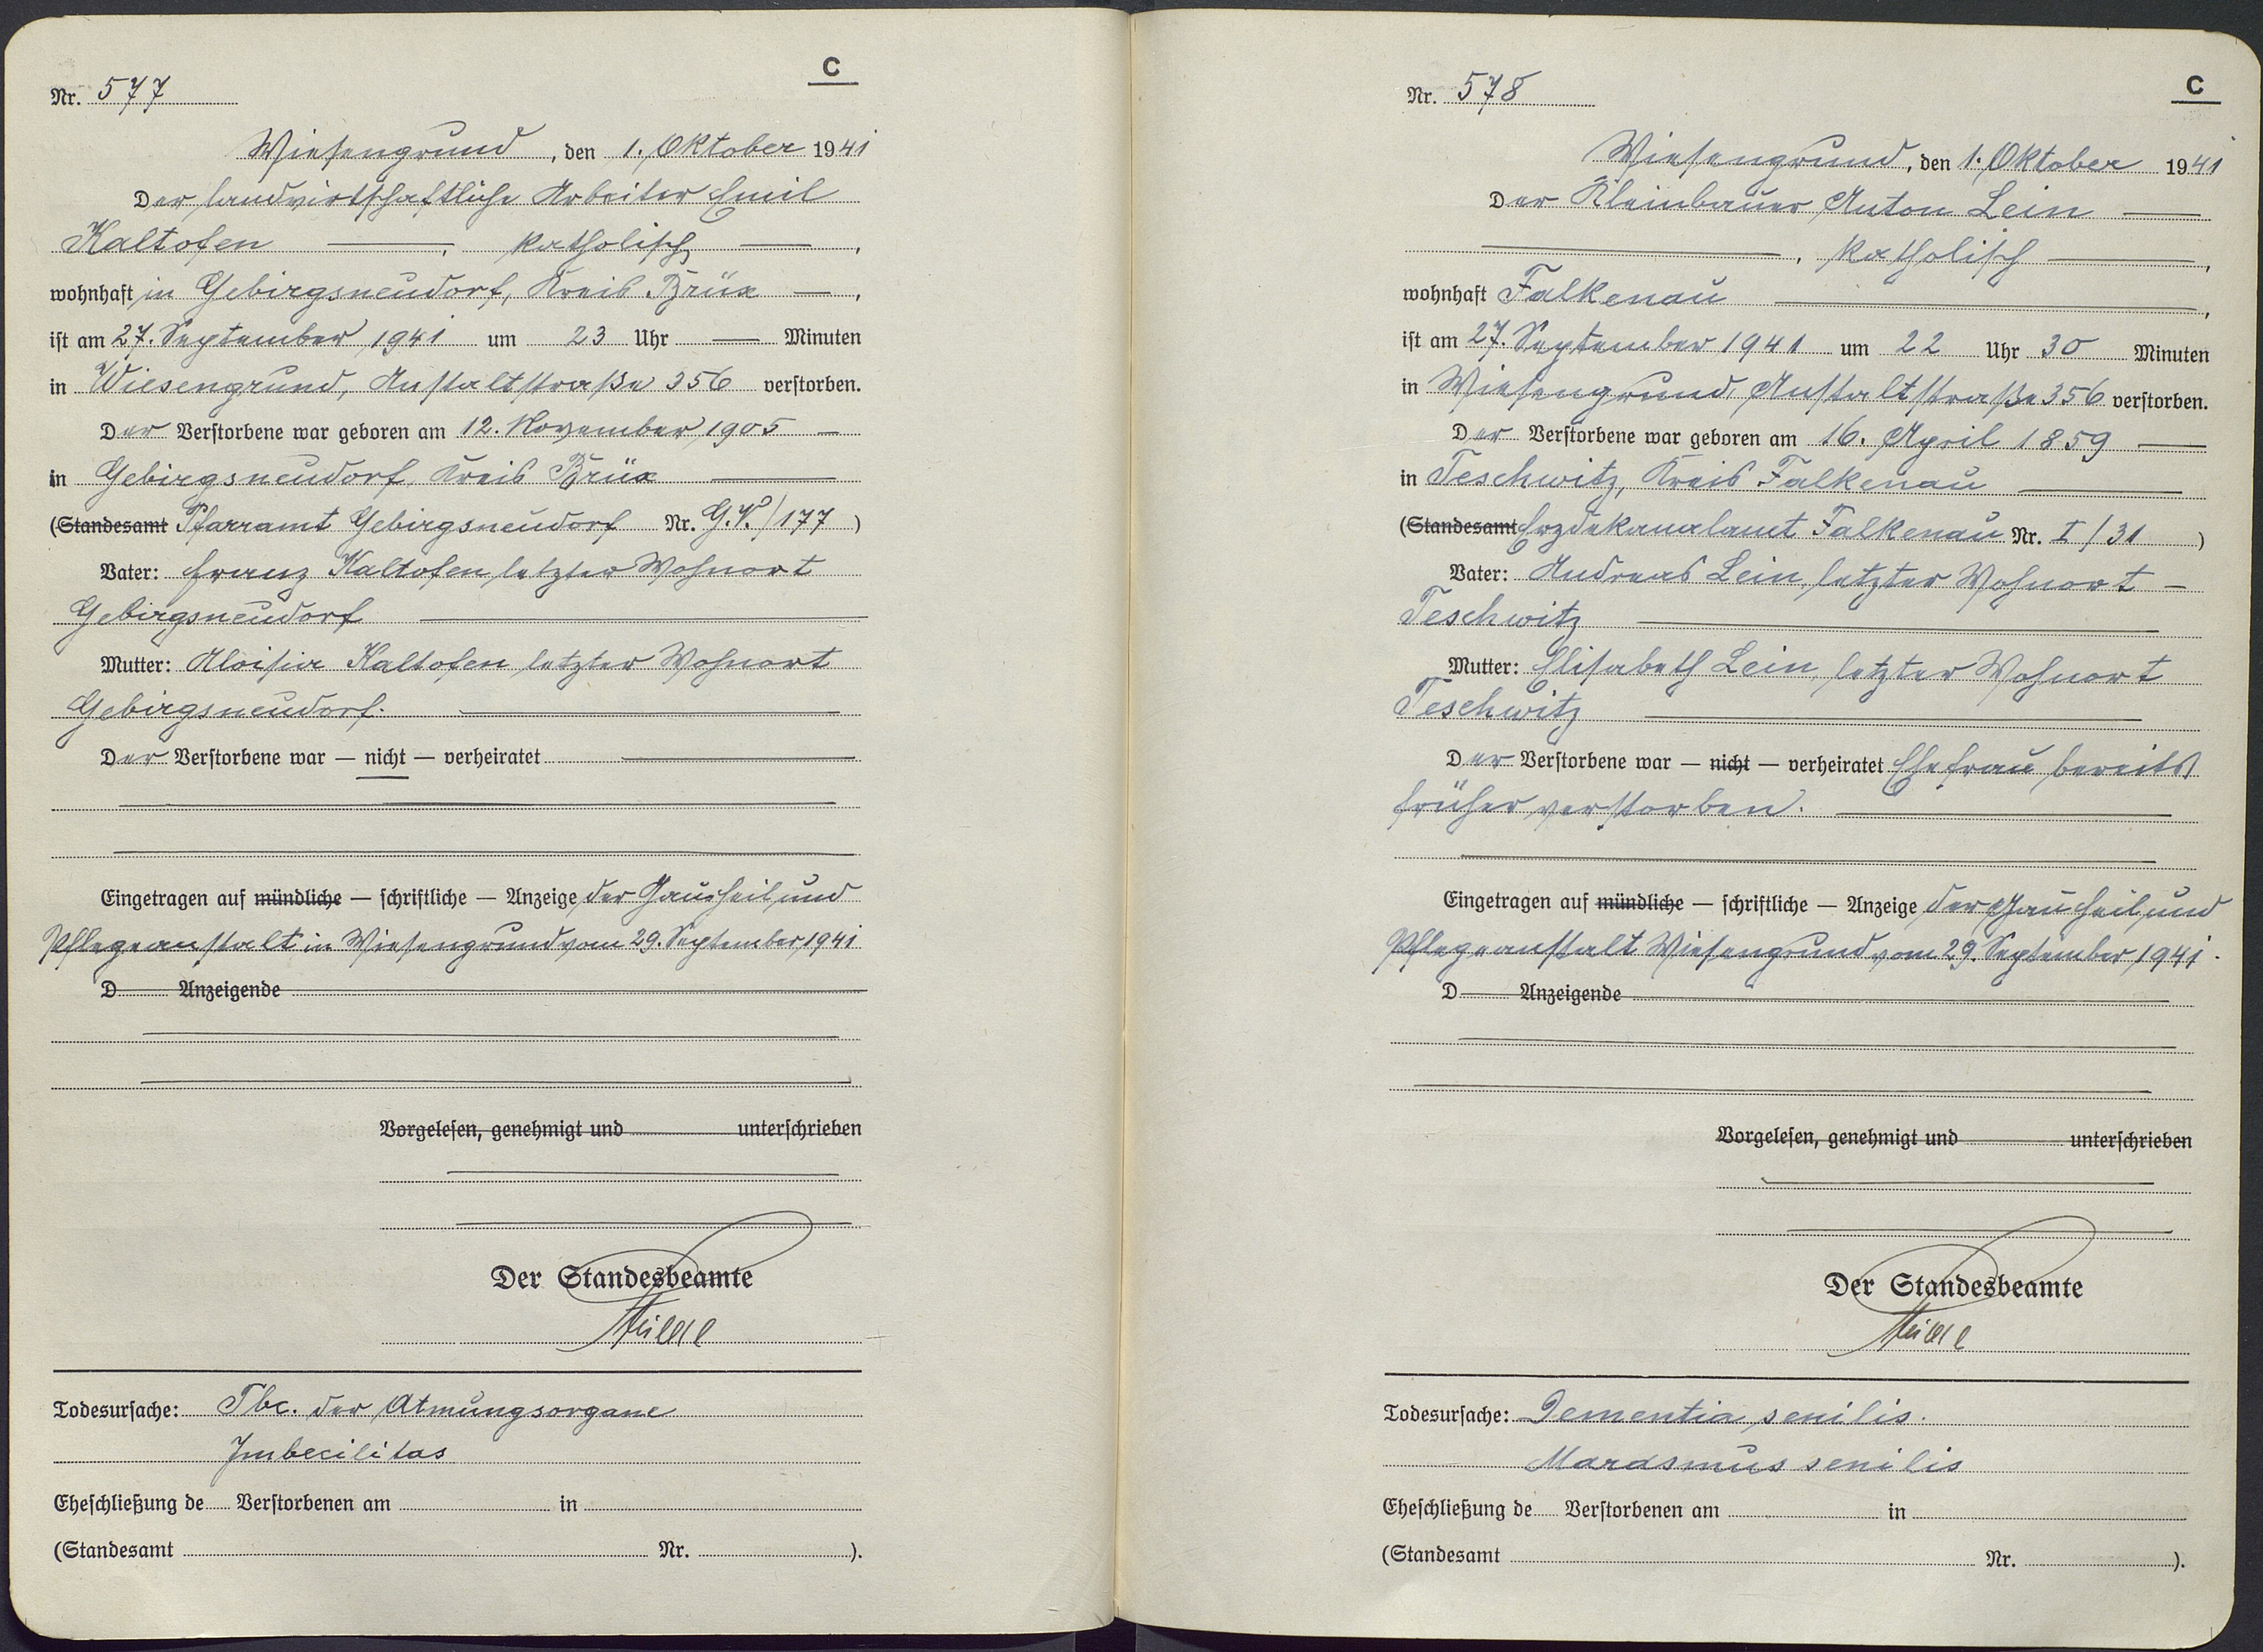 C
Nr. 577
Wiesengrund, den 1. Oktober 1941
Der landwirtschaftliche Arbeiter Emil
Kaltofen —, katholisch —,
wohnhaft in Gebirgsneudorf, Kreis Brüx —,
ist am 27. September 1941 um 23 Uhr — Minuten
in Wiesengrund, Anstaltstraße 356 verstorben.
Der Verstorbene war geboren am 12. November 1905 —
in Gebirgsneudorf, Kreis Brüx —
(Standesamt Pfarramt Gebirgsneudorf Nr. G.V./177)
Vater: Franz Kaltofen, letzter Wohnort
Gebirgsneudorf —
Mutter: Aloisia Kaltofen, letzter Wohnort
Gebirgsneudorf. —
Der Verstorbene war — nicht — verheiratet —
Eingetragen auf mündliche — schriftliche — Anzeige der Gauheil und
Pflegeanstalt in Wiesengrund vom 29. September 1941
D Anzeigende
Vorgelesen, genehmigt und unterschrieben
Der Standesbeamte
Todesursache: Tbc. der Atmungsorgane
Imbecilitas
Eheschließung de Verstorbenen am in
(Standesamt Nr. ).
C
Nr. 578
Wiesengrund, den 1. Oktober 1941
Der Kleinbauer Anton Lein —
—, katholisch —,
wohnhaft Falkenau —,
ist am 27. September 1941 um 22 Uhr 30 Minuten
in Wiesengrund, Anstaltstraße 356 verstorben.
Der Verstorbene war geboren am 16. April 1859 —
in Teschwitz, Kreis Falkenau —
(Standesamt Erzdekanalamt Falkenau Nr. I/31)
Vater: Andreas Lein, letzter Wohnort —
Teschwitz —
Mutter: Elisabeth Lein, letzter Wohnort
Teschwitz —
Der Verstorbene war — nicht — verheiratet Ehefrau bereits
früher verstorben. —
Eingetragen auf mündliche — schriftliche — Anzeige der Gauheil und
Pflegeanstalt Wiesengrund vom 29. September 1941.
D Anzeigende
Vorgelesen, genehmigt und unterschrieben
Der Standesbeamte
Todesursache: Dementia senilis.
Marasmus senilis
Eheschließung de Verstorbenen am in
(Standesamt Nr. ).